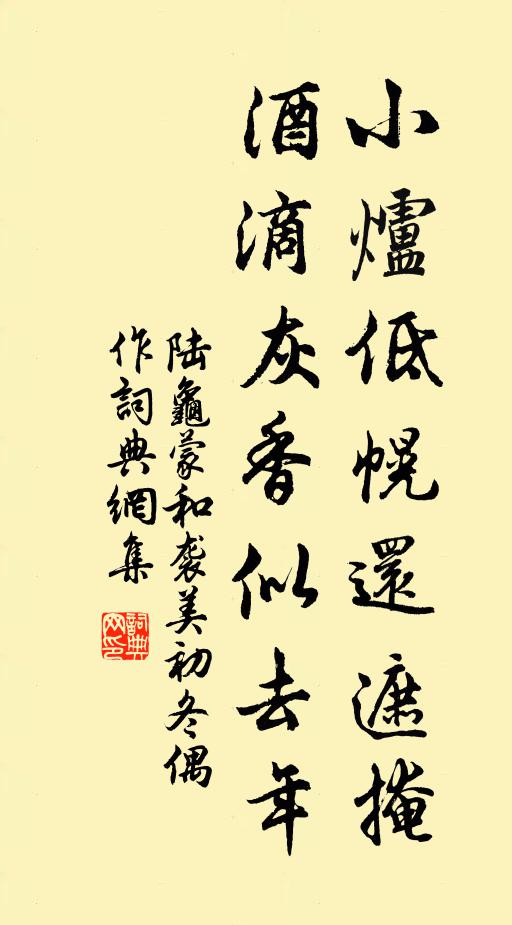 小爐低幌還遮掩
酒滴灰香似去年
陸龜蒙和袭美初冬偶
作詞典網集
詞典
网印